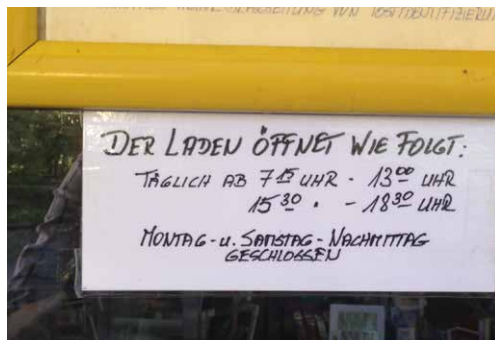 VON POSTIDENTIFIZIERU
DER LADEN ÖFFNET WIE FOLGT:
TÄGLICH AB 7 15 UHR - 13 00 UHR
15 30 " - 18 30 UHR
MONTAG- u. SAMSTAG-NACHMITTAG
GESCHLOSSEN